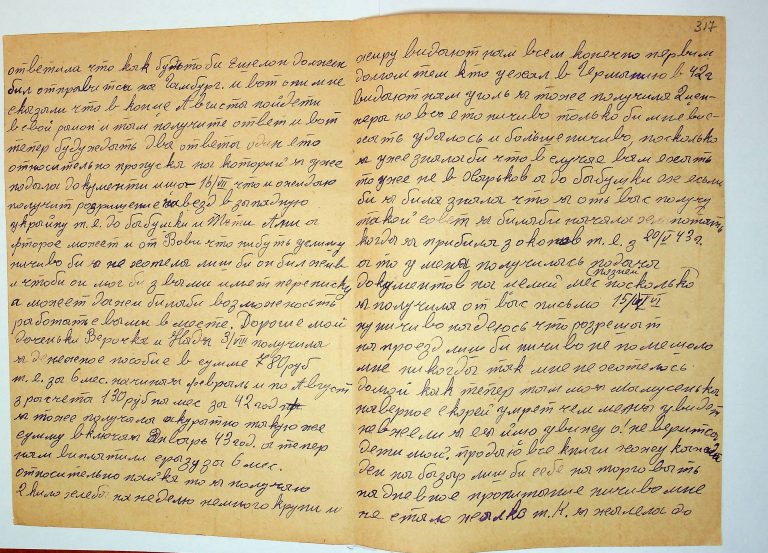 ответила что как будьто би Ешелон должен
бил отправитса на Гамбург. и вот они мне
сказали что в конце Августа пойдети
в свой район и там получите ответ и вот
тепер буду ждать два ответа один ето
относительно пропуска на которий я уже
подала документи мног 16/VII что и ожидаю
получит розришение на везд в западную
украйну т.е. до бабушки и Тёти Ани а
фторое может и от Вови что нибуть услишу
ничиво би я не хотела лиш би он бил жив
и чтоби он мог би з вами имет переписку
а может даже билаби возможность
работать с вами в месте. Дорогие мои
доченьки Верочка и Надя 3/VIII получила
я денежное пособие в сумме 780 руб
т.е. за 6 мес. начиная февраль и по Август
з расчета 130 руб на мес за 42 год
я тоже получала акуратно такую же
сумму включая Январь 43 год. а тепер
нам виплатили сразу за 6 мес.
относительно пайка то я получаю
2 кило хлеба на неделю немного крупи и
317
жиру видают нам всем конечно первим
долгом тем кто уехал в Германию в 42 г
видают нам уголь я тоже получила 2 цен-
нера но всо ето ничиво только би мне вис-
лать удалось и больше ничиво, посколько
я уже зналаби что в случае вам ехать
то уже не в Харьков а до бабушки ох есьли
би я била знала что я оть вас получу
такой совет я билаби начала хлопотать
когда я прибила з окопов т.е. з 20/V 43 г.
а то у меня получилась подача
документов на целий мес позней посколько
я получила от вас письмо 15/VI
ну ничиво надеюсь что розрешат
на проезд лиш би ничиво не помешало
мне никогда так мне не хотелось
домой как тепер там моя мамусенька
наверное скорей умрет чем меня увидет
невжели я её яйо увижу о! не верится
дети мои, продаю все книги хожу каждий
ден на базар лиш би себе наторговать
на дневное пропитание ничиво мне
не стало жалко т.к. я жалела до